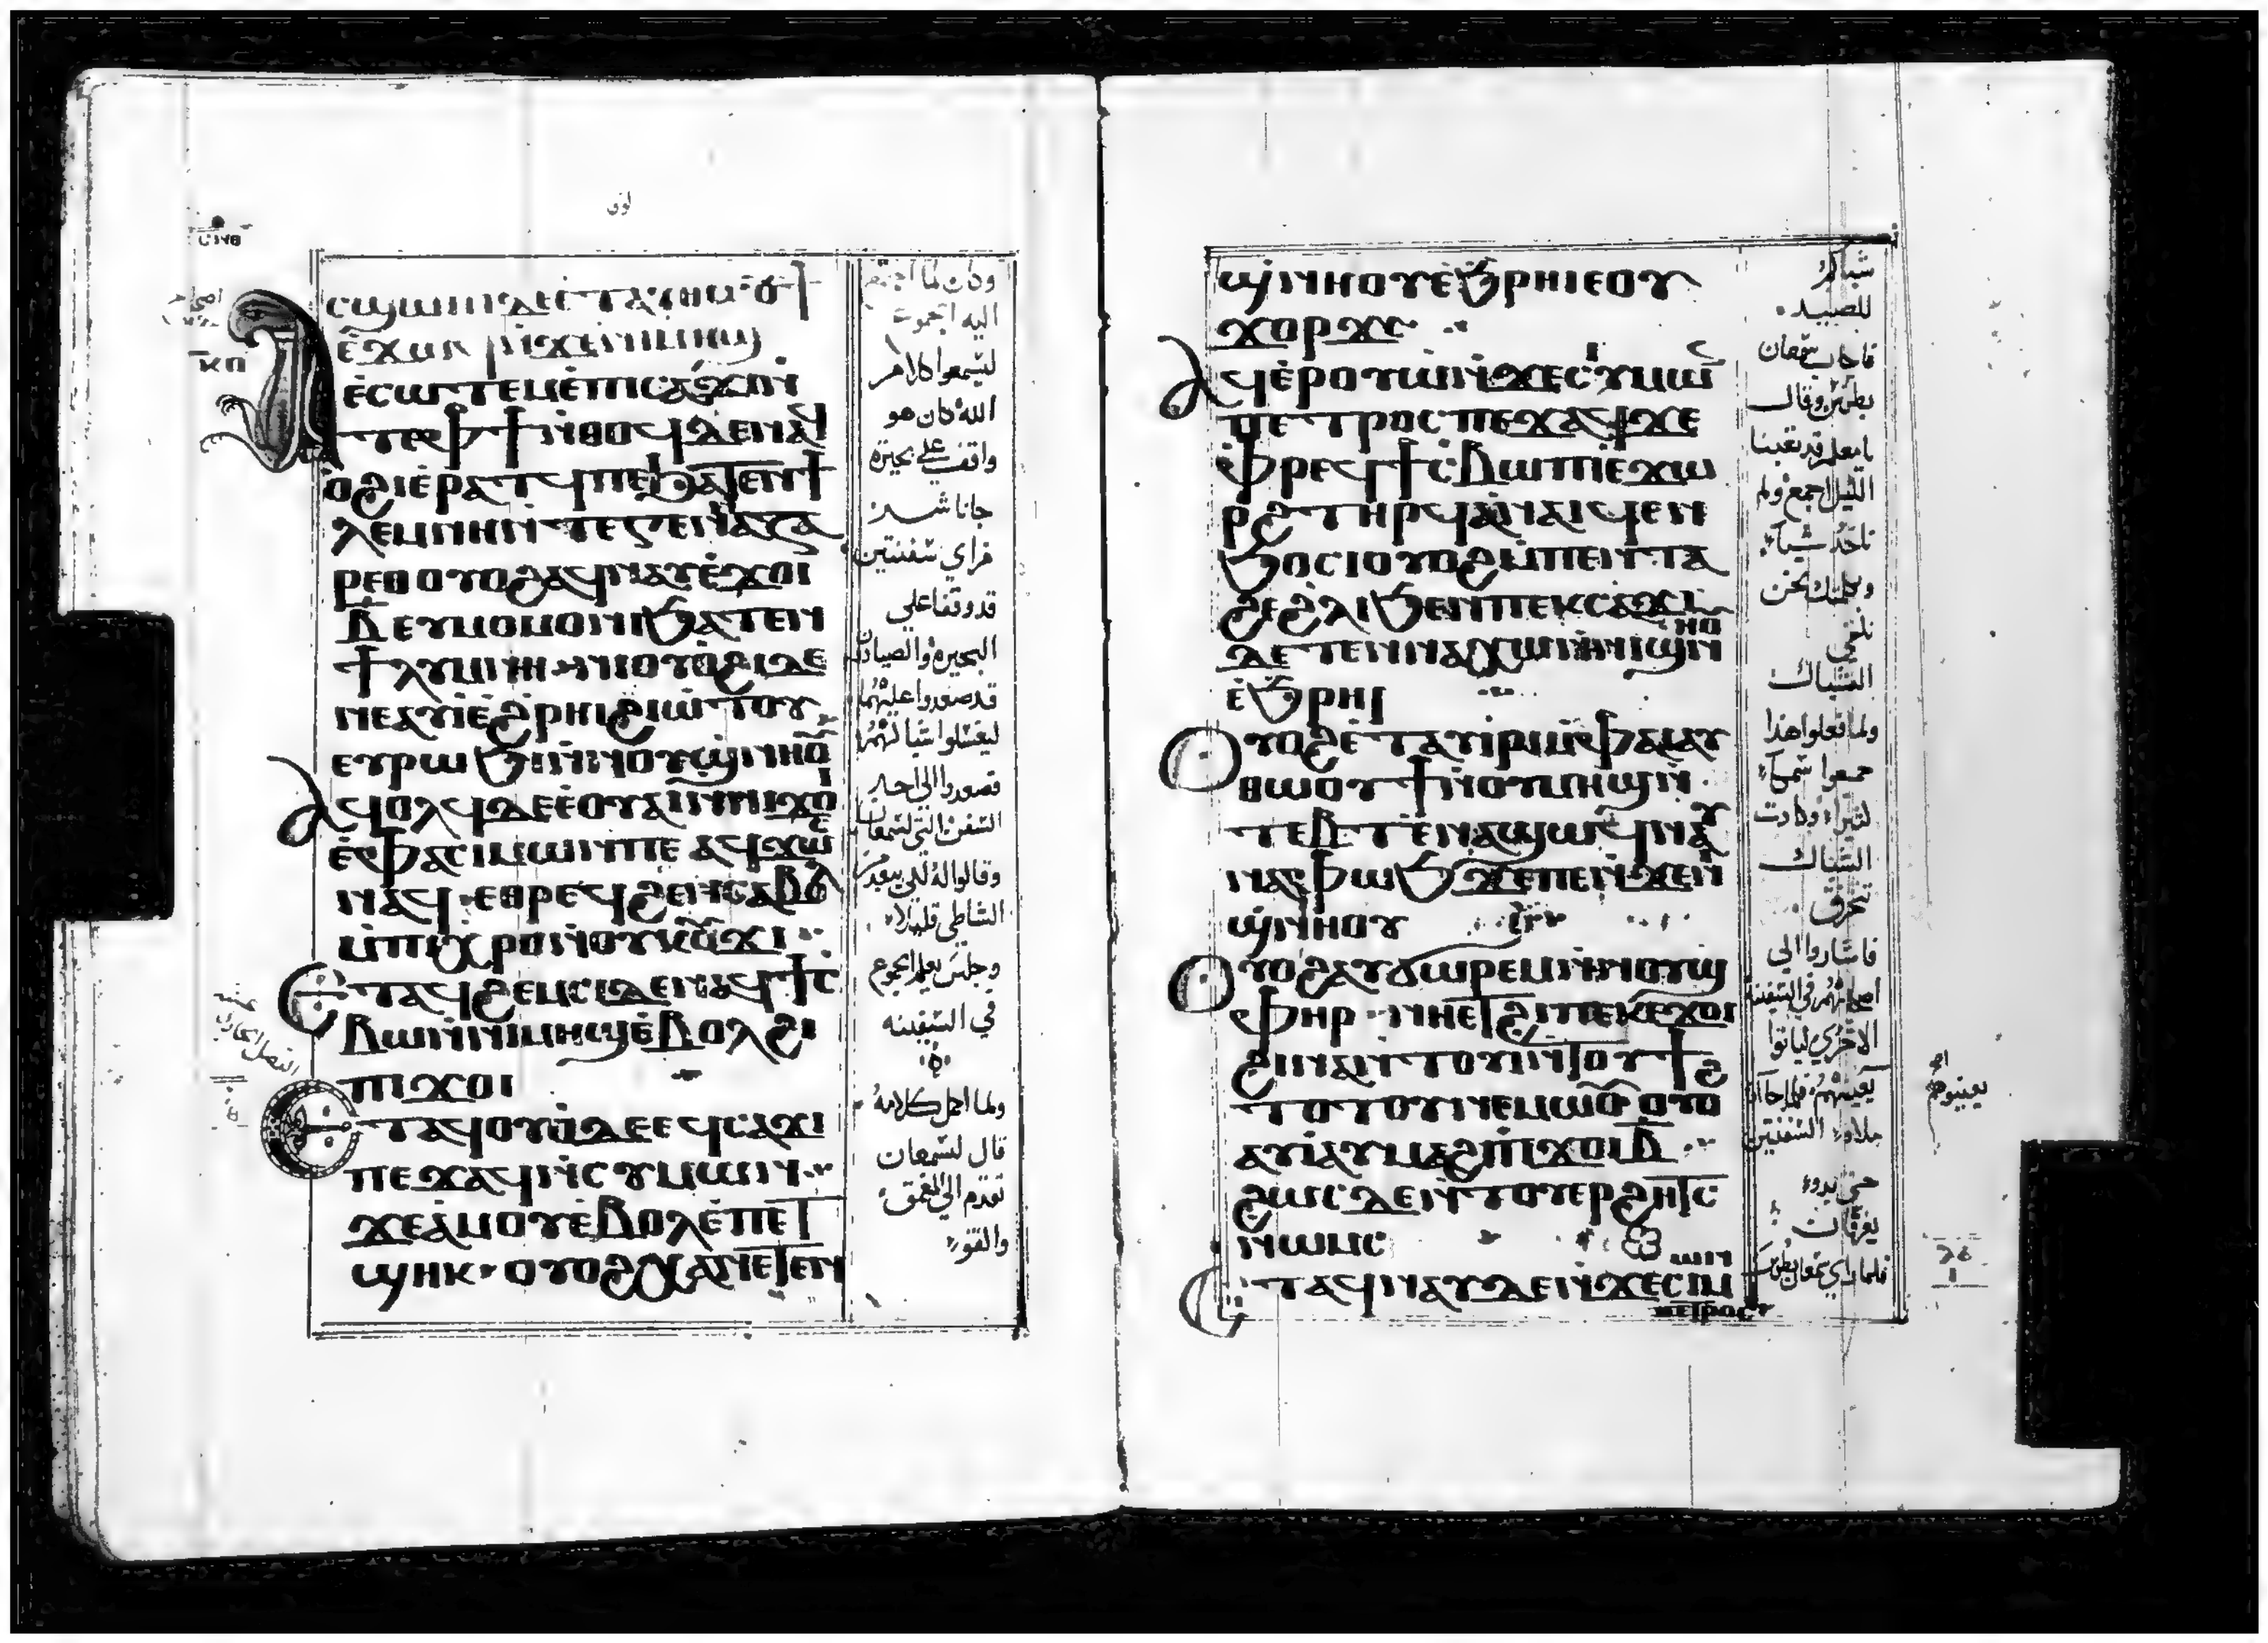 لوق
ⲥϣⲱⲡⲓ ⲇⲉ ⲉⲧⲁ
ⲉϫⲱϥ ⲛϫⲉⲛⲓⲙⲏϣ
ⲉⲥⲱⲧⲉⲙ ⲉⲡⲓⲥⲁϫⲓ ⲛ̀
ⲧⲉⲫϯ ⲛ̀ⲑⲟϥ ⲇⲉ ⲛⲁϥ
ⲟϩⲓ ⲉⲣⲁⲧϥ ⲡⲉ ϧⲁⲧⲉⲛ ϯ
ⲗⲉⲙⲛⲏ ⲛ̀ⲧⲉ ⲅⲉⲛⲛⲏⲥⲁ
ⲣⲉⲑ ⲟⲩⲟϩ ⲁϥⲛⲁⲩ ⲉ̀ϫⲟⲓ
ⲃ̅ ⲉⲩⲙⲟⲛⲓ ϧⲁⲧⲉⲛ
ϯⲗⲩⲙⲛⲏ ⲛⲓⲟⲩⲟϩⲓ ⲇⲉ
ⲛⲉⲁⲩⲓ̀ ⲉ̀ϩⲣⲏⲓ ϩⲓⲱⲧⲟⲩ
ⲉⲩⲣⲱϧⲓ ⲛ̀ⲛⲟⲩϣⲛⲏⲟⲩ
ⲁϥⲟⲗϥ ⲇⲉ ⲉⲟⲩⲁⲓ ⲛ̀ⲛⲓϫⲟⲓ
ⲉ̀ⲫⲁⲥⲓⲙⲱⲛ ⲡⲉ ⲁϥϫⲟⲥ
ⲛⲁϥ ⲉⲑⲣⲉϥϩⲉⲛϥ ⲥⲁⲃⲟⲗ
ⲙ̀ⲡⲓⲭⲣⲟ ⲛ̀ⲟⲩⲕⲟⲩϫⲓ
ⲉⲧⲁϥϩⲉⲙⲥⲓ ⲇⲉ ⲛⲁϥϯⲥ
ⲃⲱ ⲛ̀ⲛⲓⲙⲏϣ ⲉ̀ⲃⲟⲗ ϩⲓ
ⲡⲓϫⲟⲓ
ⲉⲧⲁϥⲟⲩⲱ ⲇⲉ ⲉϥⲥⲁϫⲓ
ⲡⲉϫⲁϥ ⲛ̀ⲥⲩⲙⲱⲛ
ϫⲉ ⲁⲙⲟⲩ ⲉ̀ⲃⲟⲗ ⲉ̀ⲡⲉⲧ
ϣⲏⲕ ⲟⲩⲟϩ ⲭⲁ ⲛⲉⲧⲉⲛ
وكان لما اجتمع
اليه الجموع
ليسمعوا كلام
الله كان هو
واقف على بحيرة
جاناشر
فراى سفينتين
قد وقفا على
البحيرة والصيادين
قد صعدوا عليهما
ليغسلوا شباكهم
فصعد الى احد
السفن التى لسمعان
وقالوا له
الشاطى قليلا
وجلس يعلم الجموع
في السفينه
ولما اكمل كلامه
قال لسمعان
تقدم الى العمق
والقوا
ϣⲛⲏⲟⲩ ⲉ̀ϧⲣⲏⲓ ⲉⲟⲩ
ϫⲟⲣϫⲥ
ⲁϥⲉⲣⲟⲩⲱ ⲛ̀ϫⲉ ⲥⲩⲙⲱⲛ
ⲡⲉⲧⲣⲟⲥ ⲡⲉϫⲁϥ ϫⲉ
ⲫⲣⲉϥϯⲥⲃⲱ ⲡⲓⲉϫⲱ
ⲣϩ ⲧⲏⲣϥ ⲁⲛⲁⲓϥ ⲉⲛ
ϧⲟⲥⲓ ⲟⲩⲟϩ ⲙ̀ⲡⲉⲛⲧⲁ
ϩⲉ ϩⲗⲓ ϧⲉⲛ ⲡⲉⲕⲥⲁϫⲓ
ⲇⲉ ⲧⲉⲛⲛⲁⲭⲱ ⲛ̀ⲛⲓϣⲛⲏⲟⲩ
ⲉ̀ϧⲣⲏⲓ
ⲟⲩⲟϩ ⲉ̀ⲧⲁⲩⲓⲣⲓ ⲙ̀ⲫⲁⲓ ⲁⲩ
ⲑⲱⲟⲩϯ ⲛ̀ⲟⲩⲙⲏϣ ⲛ̀
ⲧⲉⲃⲧ ⲉⲛⲁϣⲱϥ ⲛⲁⲩ
ⲛⲁⲫⲱϧ ϫⲉ ⲡⲉ ⲛ̀ϫⲉⲛⲓ
ϣⲛⲏⲟⲩ
ⲟⲩⲟϩ ⲁⲩϭⲱⲣⲉⲙ ⲛ̀ⲛⲟⲩϣ
ⲫⲏⲣ ⲛⲏⲉⲧϩⲓ ⲡⲓⲕⲉϫⲟⲓ
ϩⲓⲛⲁ ⲛ̀ⲧⲟⲩⲓ̀ ⲛ̀ⲧⲟⲩϯ
ⲧⲟⲧⲟⲩ ⲛⲉⲙⲱⲟⲩ ⲟⲩⲟϩ
ⲁⲩⲓ̀ ⲁⲩⲙⲁϩ ⲡⲓϫⲟⲓ ⲃ̅
ϩⲱⲥⲇⲉ ⲛ̀ⲧⲟⲩⲉⲣϩⲏⲧⲥ
ⲛ̀ⲱⲙⲥ
ⲉⲧⲁϥⲛⲁⲩ ⲇⲉ ⲛ̀ϫⲉ ⲥⲓⲙⲱⲛ
ⲡⲉⲧⲣⲟⲥ
شباككم
للصيد
فاجاب سمعان
بطرس وقال
يا معلم قد تعبنا
الليل اجمع ولم
ناخذ شيئا
وبكلمتك نحن
نلقي
الشباك
ولما فعلوا هذا
جمعوا سمكا
كثيرا وكادت
الشباك
تتخرق
فاشاروا الى
اصحابهم في السفينه
الاخرى لياتوا
يعينهم فلما جاا
ملاوا السفينتين
حتى بدوا
يغرقان
فلما راى سمعان بطرس
يعينوهم